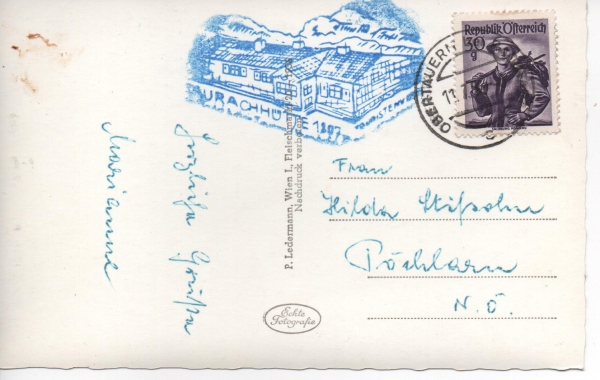 Herzliche Grüße
Marianne
P. Ledermann, Wien I., Fleischmarkt
Nachdruck verboten
Echte
Fotografie
1807
Republik Österreich
30
g
OBERTAUERN
Frau
Hilda
Pöchlarn
N. Ö.